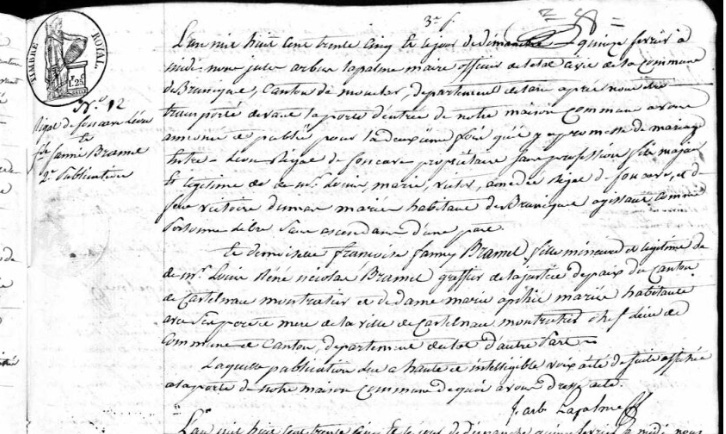 3e f.
TIMBRE ROYAL
N° 12
Rigal de foucaux Léon
et
Dlle fanni Bramel
2e publication
L'an mil huit cent trente cinq et le jour de dimanche quinze fevrier à
midi nous jules arbieu lapalme maire officier de l'état civil de la commune
de Bruniquel, Canton de monclar, departement de
transporté devant la porte d'entrée de notre maison commune avons
annoncé et publié pour la deuxieme fois qu'il y a promesse de mariage
Entre Léon Rigal de foucaux propriétaire sans profession fils majeur
Et legitime de de mr Louis, marie, victor, amedée Rigal de foucaux, et de
feue victoire mariée habitant de Bruniquel agissant comme
personne libre sans ascendans d'une part
Et demoiselle françoise fanny Bramel fille mineure et legitime de
de mr Louis Réné nicolas Bramel greffier de la justice de paix du Canton
de Castelnau montratier et de dame marie mariés habitante
avec ses pere et mere de la ville de Castelnau montratier chef lieu de
Commune et Canton, departement du lot d'autre Part
Laquelle publication lue a haute et intelligible voix a été de suite affichée
a la porte de notre maison Commune de quoi avons dressé acte.
J. arb Lapalme
L'an mil huit cent trente cinq Et le jour de dimanche quinze fevrier à midi nous